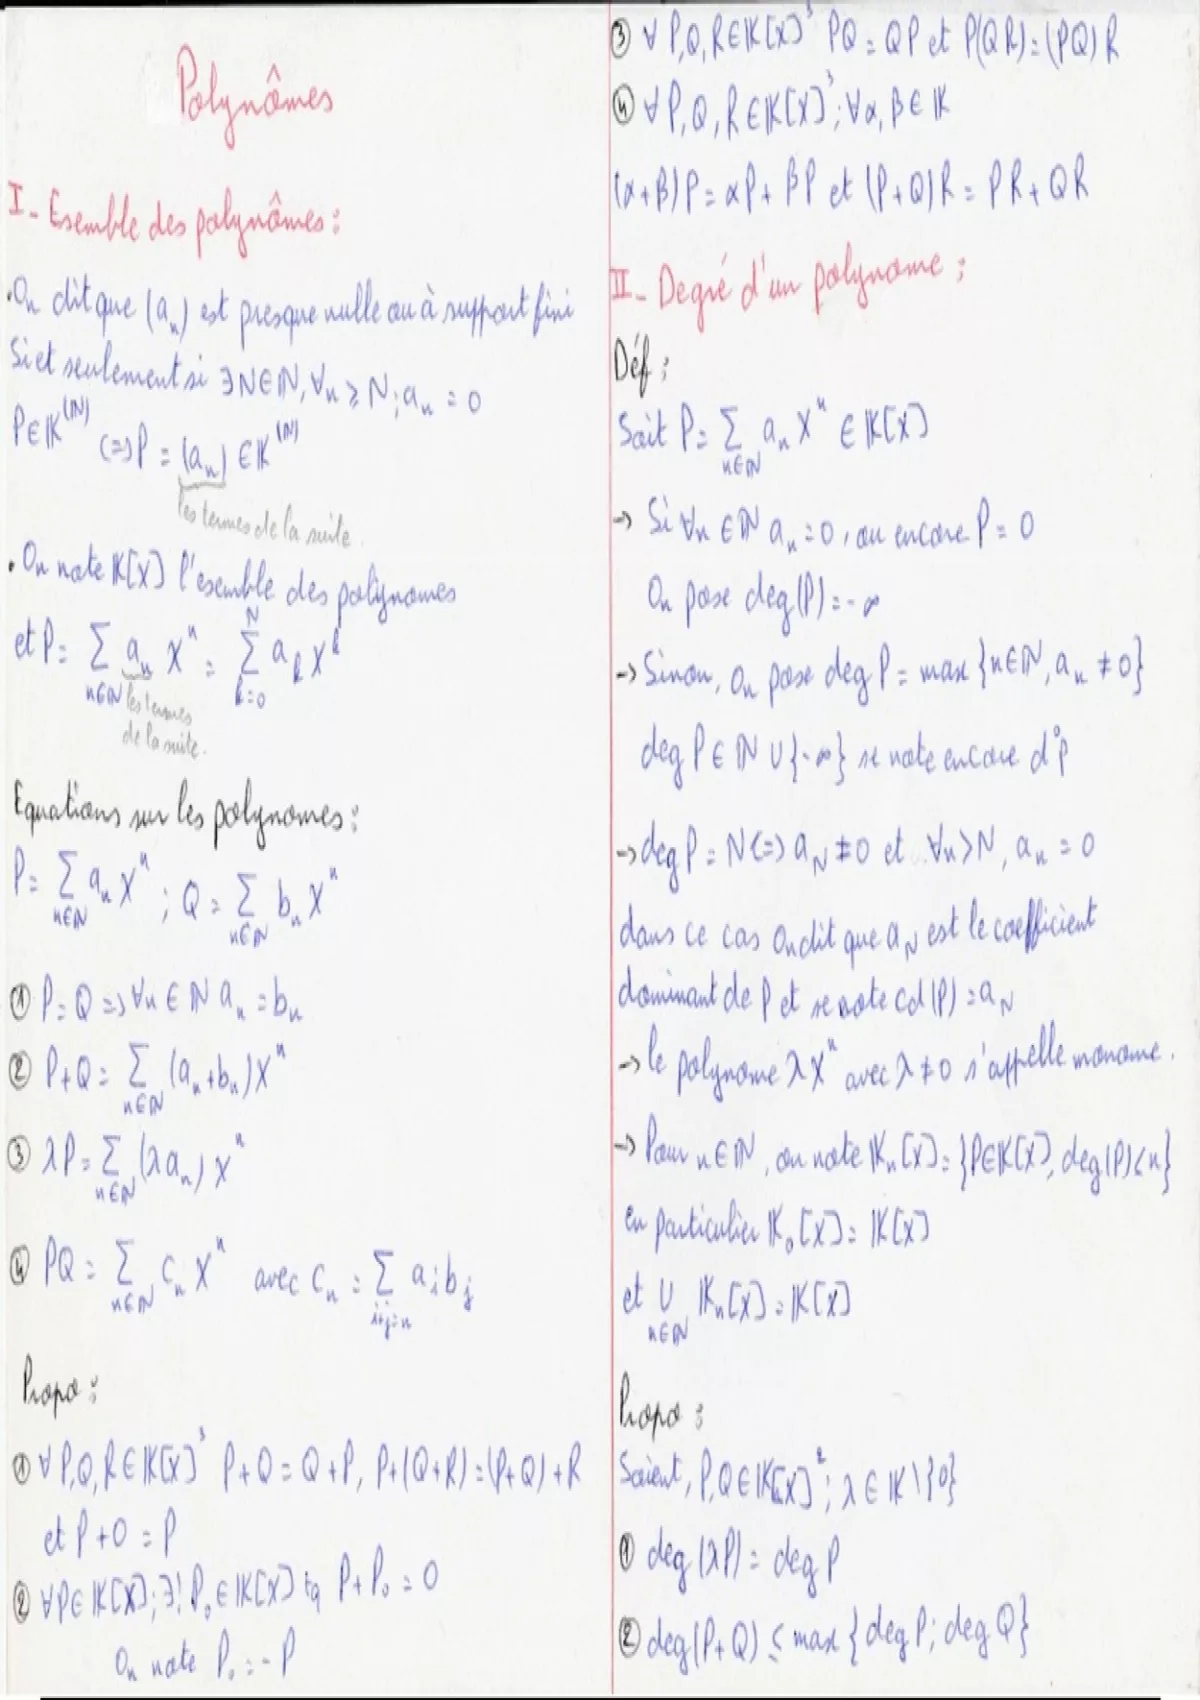 Polynômes
I - Esemble des polynômes :
. On dit que (aₙ) est presque nulle ou à support fini
Si et seulement si ∃N∈ℕ, ∀n ≥ N ; aₙ = 0
P∈𝕂^(ℕ) (=> P = (aₙ) ∈ 𝕂^(ℕ)
les termes de la suite.
. On note 𝕂[X] l'esemble des polynomes
et P = Σ_{n∈ℕ} aₙ Xⁿ = Σ_{k=0}^{N} aₖ Xᵏ
les termes
de la suite.
Equations sur les polynomes :
P = Σ_{n∈ℕ} aₙ Xⁿ ; Q = Σ_{n∈ℕ} bₙ Xⁿ
① P = Q => ∀n ∈ ℕ aₙ = bₙ
② P+Q = Σ_{n∈ℕ} (aₙ+bₙ)Xⁿ
③ λP = Σ_{n∈ℕ} (λaₙ) Xⁿ
④ PQ = Σ_{n∈ℕ} cₙ Xⁿ avec cₙ = Σ_{i+j=n} aᵢ bⱼ
Propo :
① ∀ P,Q,R ∈ 𝕂[X]³ P+Q = Q+P, P+(Q+R) = (P+Q)+R
et P+0 = P
② ∀P∈ 𝕂[X] ; ∃! P₀ ∈ 𝕂[X] tq P+P₀ = 0
On note P₀ = -P
③ ∀ P,Q,R∈𝕂[X]³ PQ = QP et P(QR) = (PQ)R
④ ∀ P,Q,R ∈𝕂[X]³ ; ∀α, β ∈ 𝕂
(α+β)P = αP + βP et (P+Q)R = PR + QR
II - Degré d'un polynome :
Déf :
Soit P = Σ_{n∈ℕ} aₙ Xⁿ ∈ 𝕂[X]
-> Si ∀n ∈ ℕ aₙ = 0, ou encore P = 0
On pose deg(P) = -∞
-> Sinon, On pose deg P = max {n∈ℕ, aₙ ≠ 0}
deg P ∈ ℕ ∪ {-∞} se note encore d°P
-> deg P = N <=> a_N ≠ 0 et ∀n>N, aₙ = 0
dans ce cas On dit que a_N est le coefficient
dominant de P et se note cd(P) = a_N
-> le polynome λXⁿ avec λ ≠ 0 s'appelle monome.
-> Pour n∈ℕ, on note 𝕂ₙ[X] = {P∈𝕂[X], deg(P)<n}
en particulier 𝕂₀[X] = 𝕂[X]
et ∪_{n∈ℕ} 𝕂ₙ[X] = 𝕂[X]
Propo :
Soient, P,Q ∈ 𝕂[X]² ; λ ∈ 𝕂\{0}
① deg(λP) = deg P
② deg(P+Q) ≤ max {deg P ; deg Q}